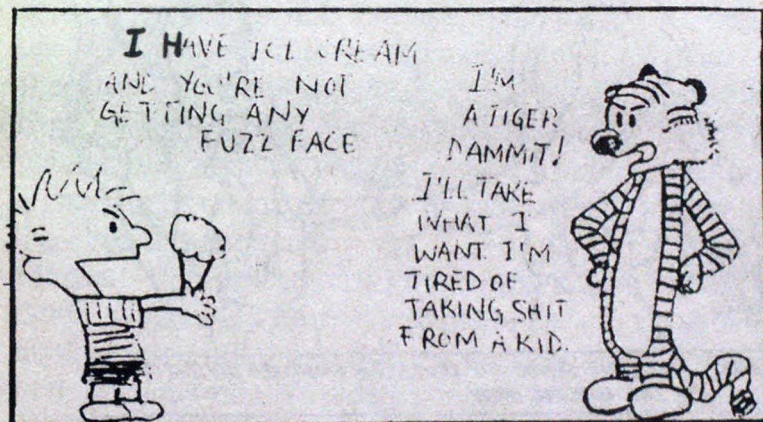 I HAVE ICE CREAM
AND YOU'RE NOT
GETTING ANY
FUZZ FACE
I'M
A TIGER
DAMMIT!
I'LL TAKE
WHAT I
WANT. I'M
TIRED OF
TAKING SHIT
FROM A KID.